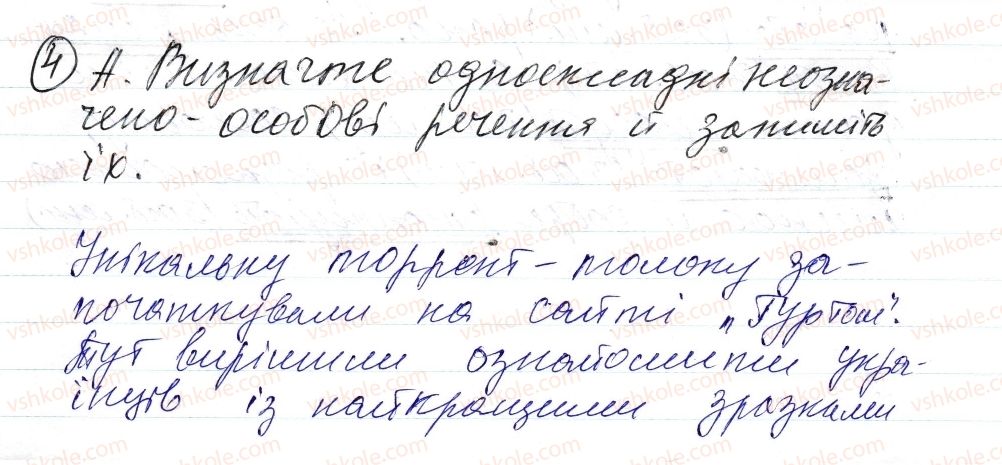 4 А. Визначте односкладні неозна-
чено-особові речення й запишіть
їх.
Унікальну торрент-толоку за-
початкували на сайті „Гуртом".
Тут вирішили ознайомити укра-
їнців із найкращими зразками